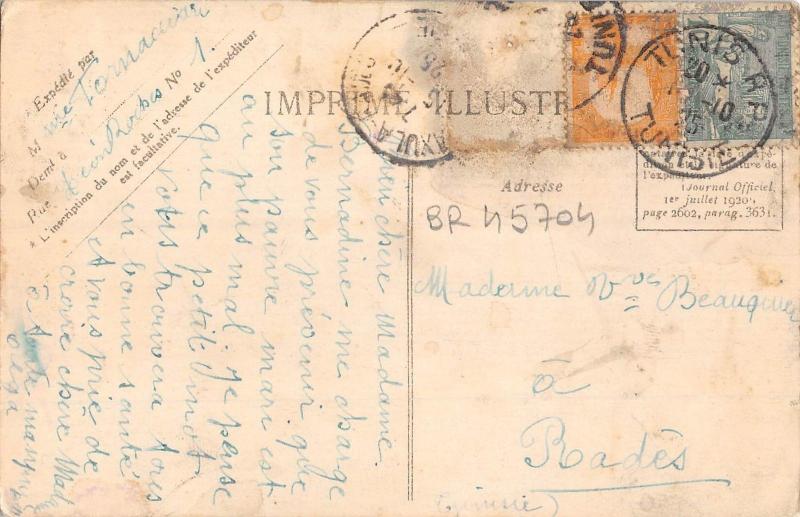 * Expédié par
M me Tornadini
Demt à
Rue Léon Roches No 1.
* L'inscription du nom et de l'adresse de l'expéditeur
est facultative.
IMPRIMÉ ILLUSTR
TUNIS R.P.
20 *
-10
25
TUNISIE
AXULA
TUNI
Adresse
l'expéditeur.
(Journal Officiel,
1er juillet 1920,
page 2602, parag. 363).
BR 45704
Madame Vve Beauquier
à
Radès
(Tunisie)
chère Madame.
Bernadine me charge
de vous prévenir que
son pauvre mari est
au plus mal. Je pense
que ce petit mot
vous trouvera tous
en bonne santé
et vous prie de
croire chère Mad
à toute